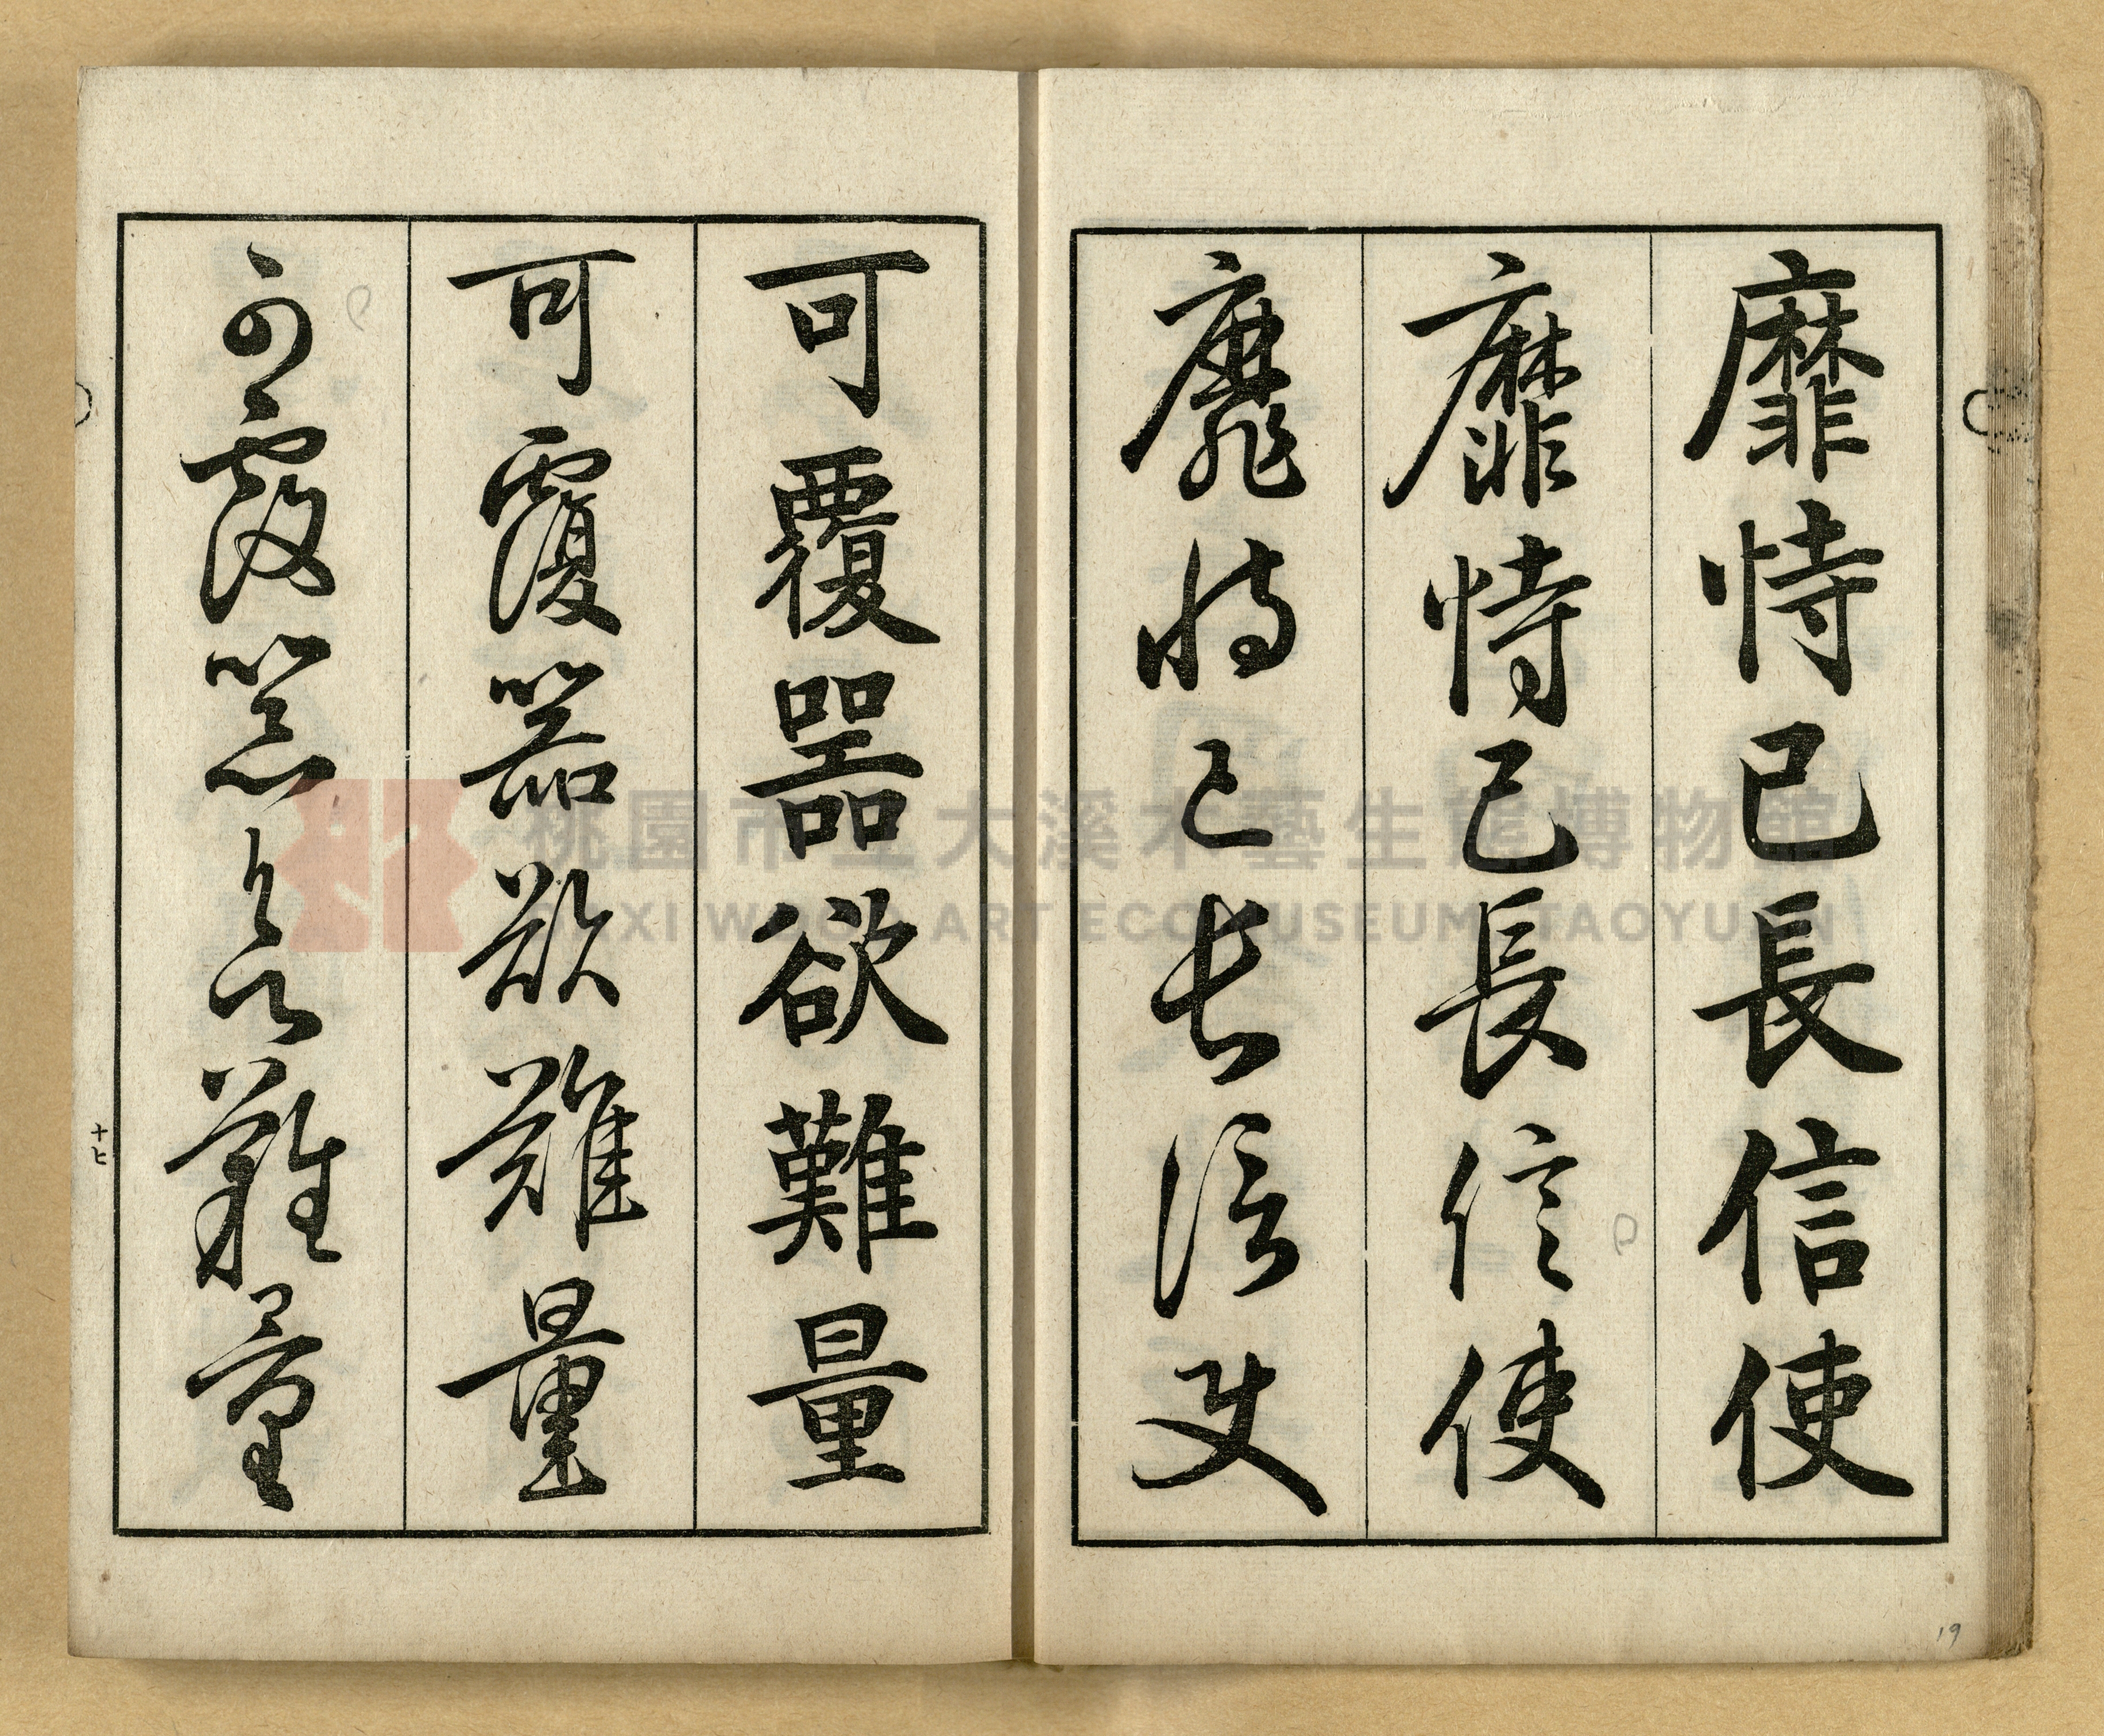 靡恃已長信使
靡恃已長信使
靡恃已長信使
可覆器欲難量
可覆器欲難量
可覆器欲難量
十七
19
桃園市立大溪木藝生態博物館
DAXI WOOD ART ECOMUSEUM, TAOYUAN